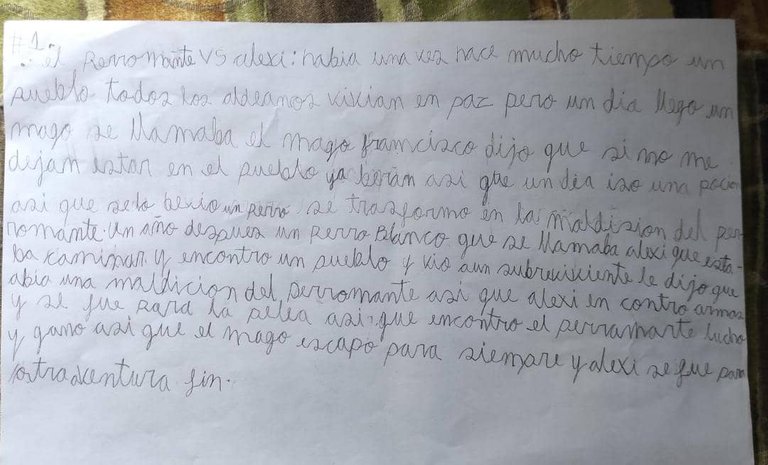 #1.
el Perromante VS alexi: habia una vez hace mucho tiempo un
pueblo todos los aldeanos vivian en paz pero un dia llego un
mago se llamaba el mago framcisco dijo que si no me
dejan estar en el pueblo ya beran asi que un dia iso una pocion
asi que se lo bevio un perro se trasformo en la maldision del per-
romante. un año despues un perro Blanco que se llamaba alexi que esta-
ba kaminar y encontro un pueblo y vio a un subreviviente le dijo que
abia una maldicion del perromante asi que alexi en contro armas
y se fue para la pelea asi que encontro el perramante lucho
y gano asi que el mago escapo para siempre y alexi se fue para
otra aventura fin.